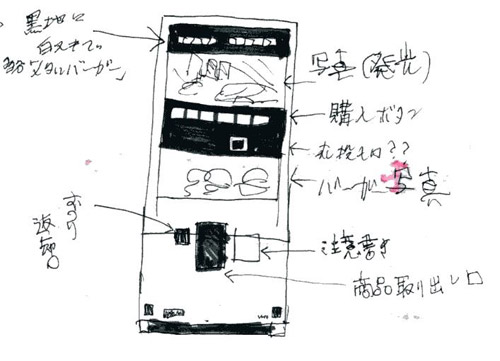 黒地に
白文字で。
「メタルバーガー」
写真(発光)
購入ボタン
お投入口??
バーガー写真
おつり
返却口
注意書き
商品取り出し口